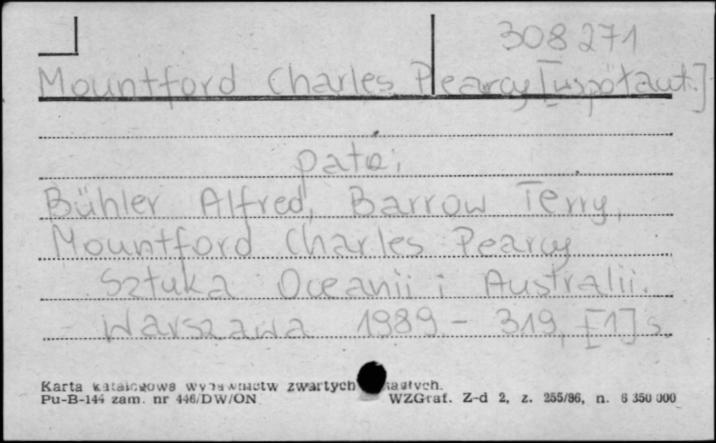 308271
Mountford Charles Pearcy [współaut.]
patrz:
Bühler Alfred, Barrow Terry,
Mountford Charles Pearcy
Sztuka Oceanii i Australii.
Warszawa 1989 - 319, [1] s.
Karta katalogowa wydawnictw zwartych
Pu-B-144 zam. nr 446/DW/ON WZGraf. Z-d 2, z. 255/86, n. 6 350 000